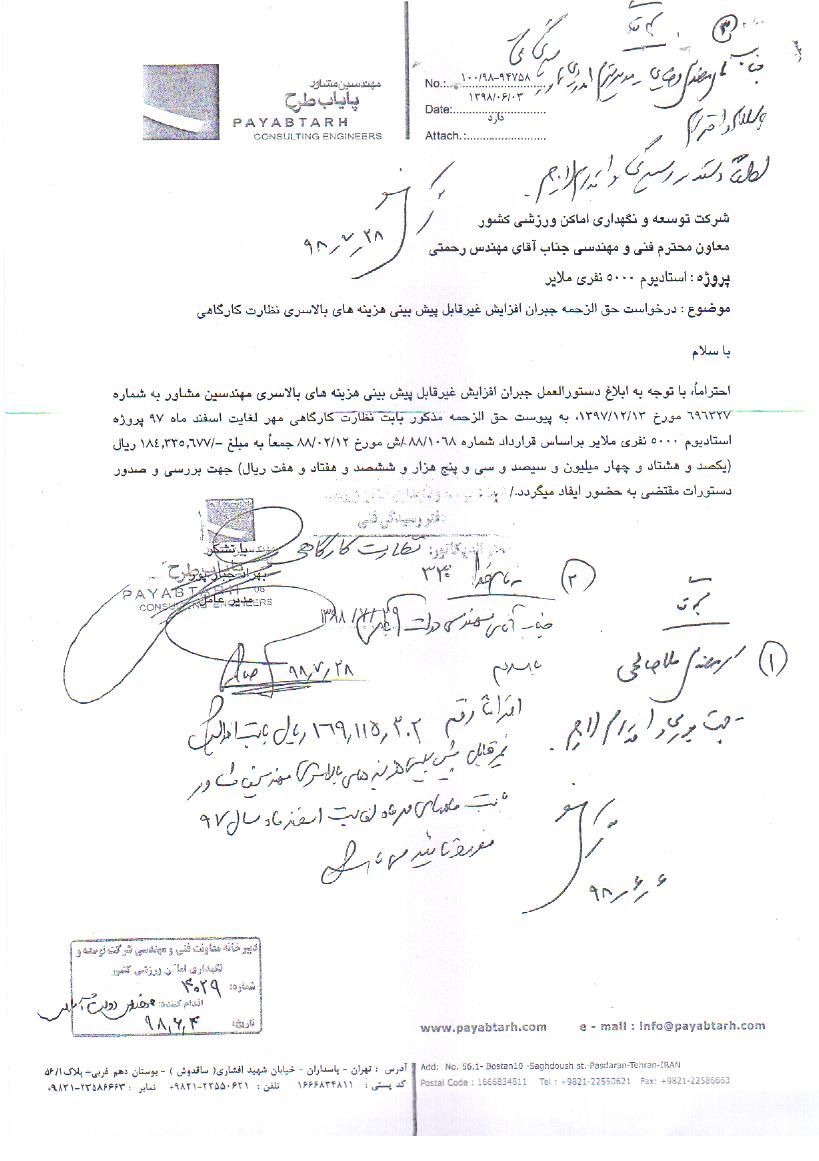 مهندسین مشاور
پایاب طرح
PAYABTARH
CONSULTING ENGINEERS
No.: ۱۰۰/۹۸-۹۴۷۵۸
Date: ۱۳۹۸/۰۶/۰۳
Attach.: دارد
۳
با سلام و احترام
۹۸-۷-۲۸
شرکت توسعه و نگهداری اماکن ورزشی کشور
معاون محترم فنی و مهندسی جناب آقای مهندس رحمتی
پروژه : استادیوم ۵۰۰۰ نفری ملایر
موضوع : درخواست حق الزحمه جبران افزایش غیرقابل پیش بینی هزینه های بالاسری نظارت کارگاهی
با سلام
احتراماً، با توجه به ابلاغ دستورالعمل جبران افزایش غیرقابل پیش بینی هزینه های بالاسری مهندسین مشاور به شماره
۶۹۶۳۲۷ مورخ ۱۳۹۷/۱۲/۱۳، به پیوست حق الزحمه مذکور بابت نظارت کارگاهی مهر لغایت اسفند ماه ۹۷ پروژه
استادیوم ۵۰۰۰ نفری ملایر براساس قرارداد شماره ۸۸/۱۰۶۸/ش مورخ ۸۸/۰۲/۱۲ جمعاً به مبلغ -/۱۸۴,۳۳۵,۶۷۷ ریال
(یکصد و هشتاد و چهار میلیون و سیصد و سی و پنج هزار و ششصد و هفتاد و هفت ریال) جهت بررسی و صدور
دستورات مقتضی به حضور ایفاد میگردد./
دفتر رسیدگی فنی
نظارت کارگاهی
۳۳۰
PAYABTARH
CONSULTING ENGINEERS
مدیر عامل
۲
به نام خدا
جناب آقای مهندس دولت آبادی
با سلام
۹۸,۷,۲۸
رقم ۱۶۹,۱۱۵,۳۰۲ ریال بابت افزایش
غیرقابل پیش بینی هزینه های بالاسری مهندسین مشاور
بابت ماههای مهرماه لغایت اسفند ماه سال ۹۷
مورد تائید می باشد
۱
- جهت بررسی و اقدام لازم.
۹۸-۶-۶
دبیرخانه معاونت فنی و مهندسی شرکت توسعه و
نگهداری اماکن ورزشی کشور
شماره: ۴۰۲۹
اقدام کننده: مهندس دولت آبادی
تاریخ: ۹۸,۶,۴
www.payabtarh.com e - mail : info@payabtarh.com
آدرس : تهران - پاسداران - خیابان شهید افشاری( ساقدوش ) - بوستان دهم غربی- پلاک ۵۶/۱
کد پستی : ۱۶۶۶۸۳۴۸۱۱ تلفن : ۲۲۵۵۰۶۲۱-۹۸۲۱+ نمابر : ۲۲۵۸۶۶۶۳-۹۸۲۱+
Add: No. 56.1- Bostan10 -Saghdoush st.-Pasdaran-Tehran-IRAN
Postal Code : 1666834811 Tel : +9821-22550621 Fax: +9821-22586663